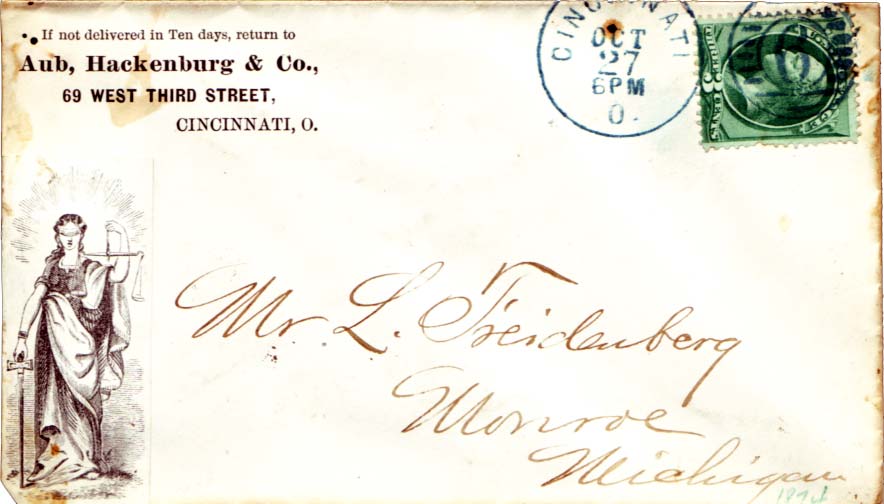 If not delivered in Ten days, return to
Aub, Hackenburg & Co.,
69 WEST THIRD STREET,
CINCINNATI, O.
CINCINNATI
OCT
27
6PM
O.
Mr L. Freidenberg
Monroe
Michigan